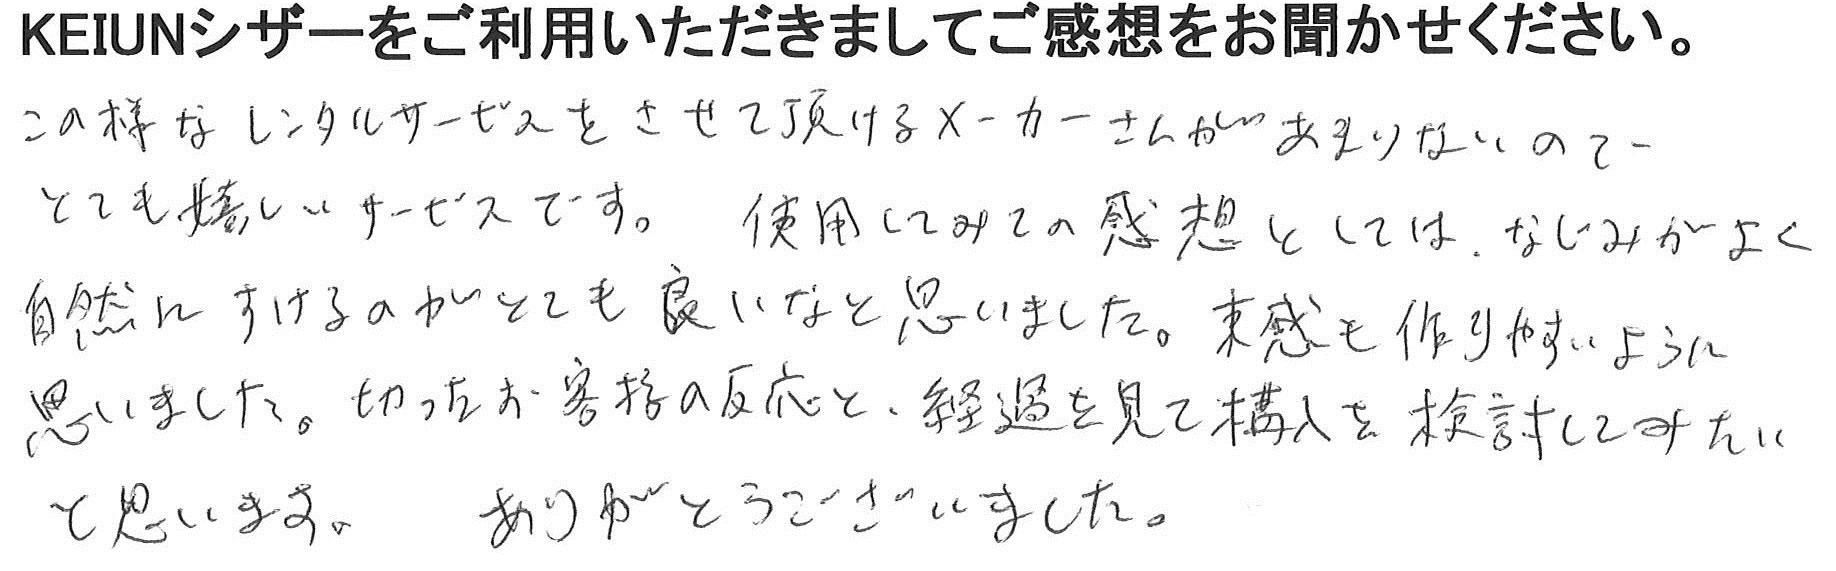 KEIUNシザーをご利用いただきましてご感想をお聞かせください。
この様なレンタルサービスをさせて頂けるメーカーさんがあまりないので
とても嬉しいサービスです。 使用してみての感想としては、なじみがよく
自然にすけるのがとても良いなと思いました。束感も作りやすいように
思いました。切ったお客様の反応と、経過を見て構入を検討してみたい
と思います。 ありがとうございました。